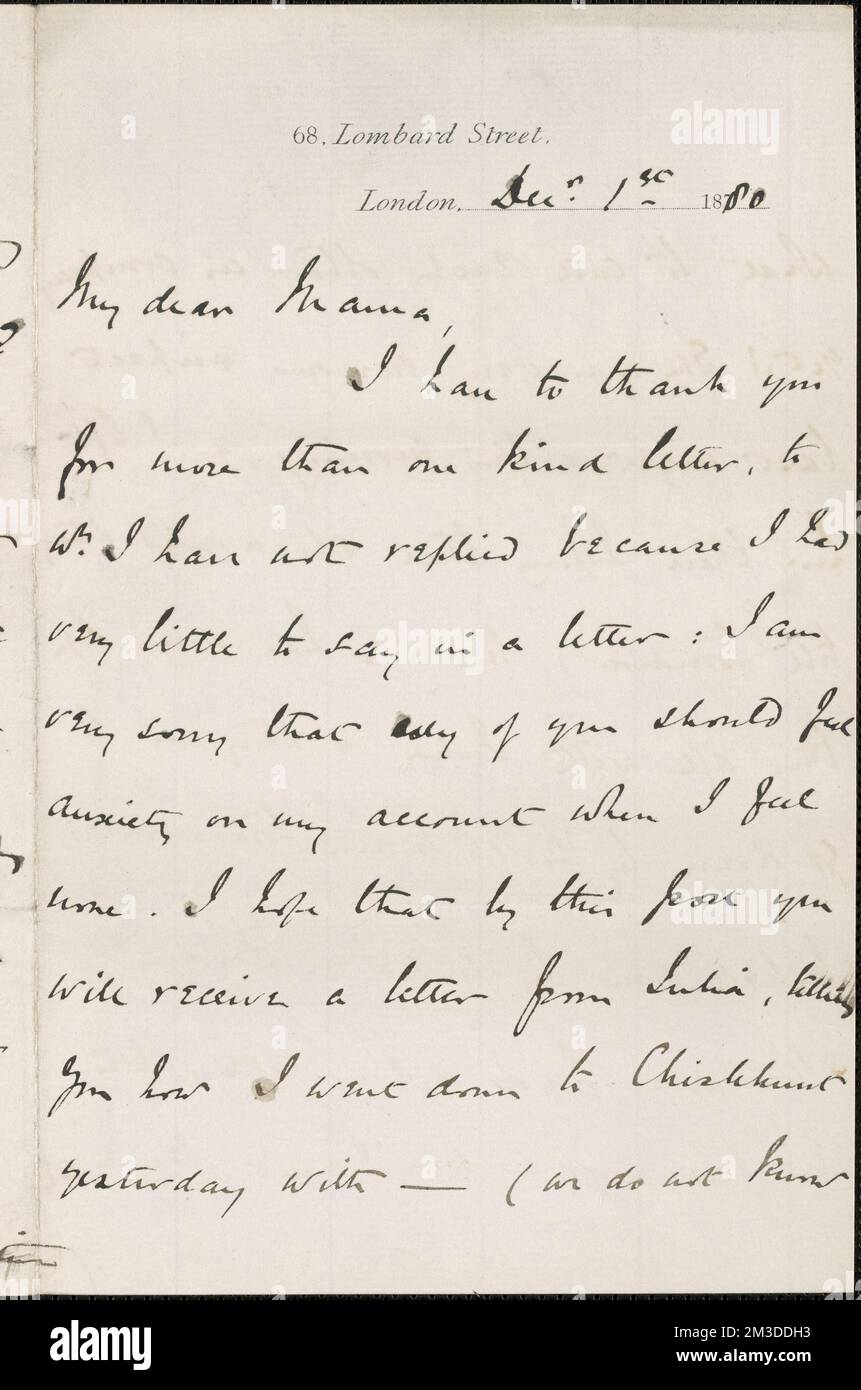 68, Lombard Street.
London, Decr. 1st 1880
My dear Mama,
I have to thank you
for more than one kind letter, to
wh. I have not replied because I had
very little to say in a letter: I am
very sorry that any of you should feel
anxiety on my account when I feel
none. I hope that by this post you
will receive a letter from Julia, telling
you how I went down to Chislehurst
yesterday with — (we do not know
alamy
Image ID: 2M3DDH3
www.alamy.com